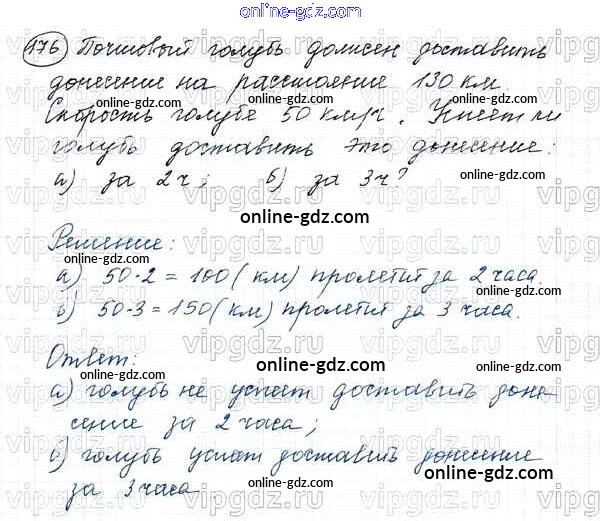 online-gdz.com
176 Почтовый голубь должен доставить
донесение на расстояние 130 км.
online-gdz.com online-gdz.com
Скорость голубя 50 км/ч. Успеет ли
голубь доставить это донесение:
online-gdz.com
а) за 2ч; б) за 3ч?
online-gdz.com
Решение:
а) 50·2=100(км) пролетит за 2 часа.
online-gdz.com
б) 50·3=150(км) пролетит за 3 часа.
Ответ:
online-gdz.com
online-gdz.com
а) голубь не успеет доставить доне
сение за 2 часа;
online-gdz.com
online-gdz.com
б) голубь успеет доставить донесение
online-gdz.com
за 3 часа
online-gdz.com